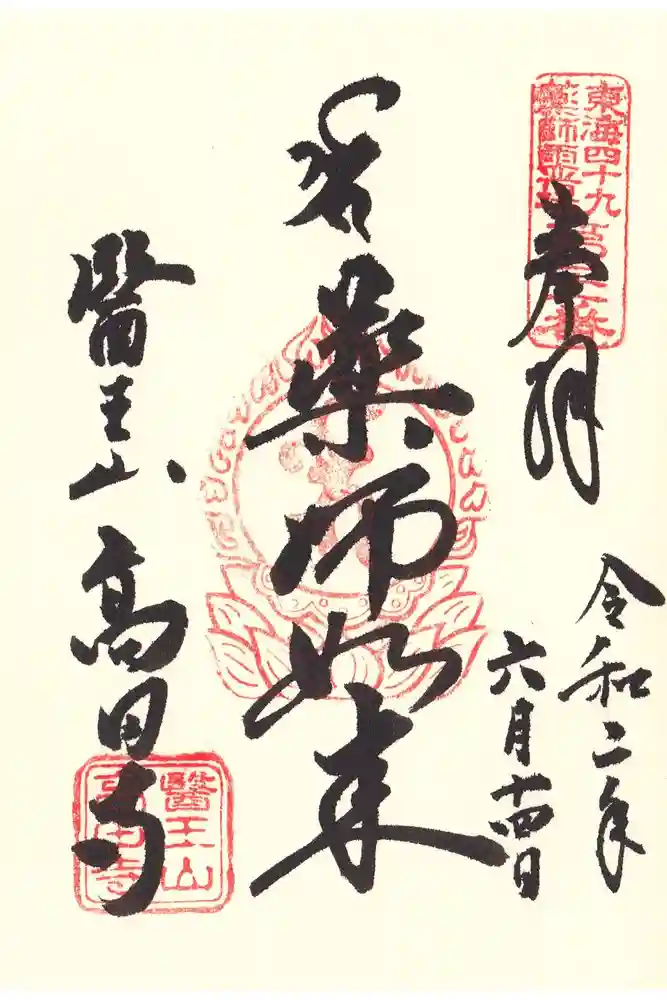 東海四十九
薬師霊場
奉拝
令和二年
六月十四日
薬師如来
醫王山 高田寺
醫王山
高田寺